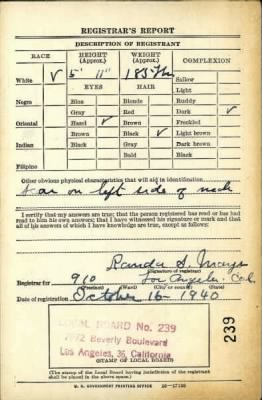 REGISTRAR'S REPORT
DESCRIPTION OF REGISTRANT
RACE HEIGHT (Approx.) WEIGHT (Approx.) COMPLEXION
White ✓ 5' 11" 185 Sallow
EYES HAIR Light
Negro Blue Blonde Ruddy
Gray Red Dark ✓
Oriental Hazel ✓ Brown Freckled
Brown Black ✓ Light brown
Indian Black Gray Dark brown
Bald Black
Filipino
Other obvious physical characteristics that will aid in identification
Scar on left side of neck
I certify that my answers are true; that the person registered has read or has had
read to him his own answers; that I have witnessed his signature or mark and that
all of his answers of which I have knowledge are true, except as follows:
(Signature of registrar)
Registrar for 910 Los Angeles Cal
(Precinct) (Ward) (City or county) (State)
Date of registration October 16 - 1940
LOCAL BOARD No. 239
7972 Beverly Boulevard
Los Angeles, 36, California
239
(STAMP OF LOCAL BOARD)
(The stamp of the Local Board having jurisdiction of the registrant
shall be placed in the above space.)
U. S. GOVERNMENT PRINTING OFFICE 16—17105